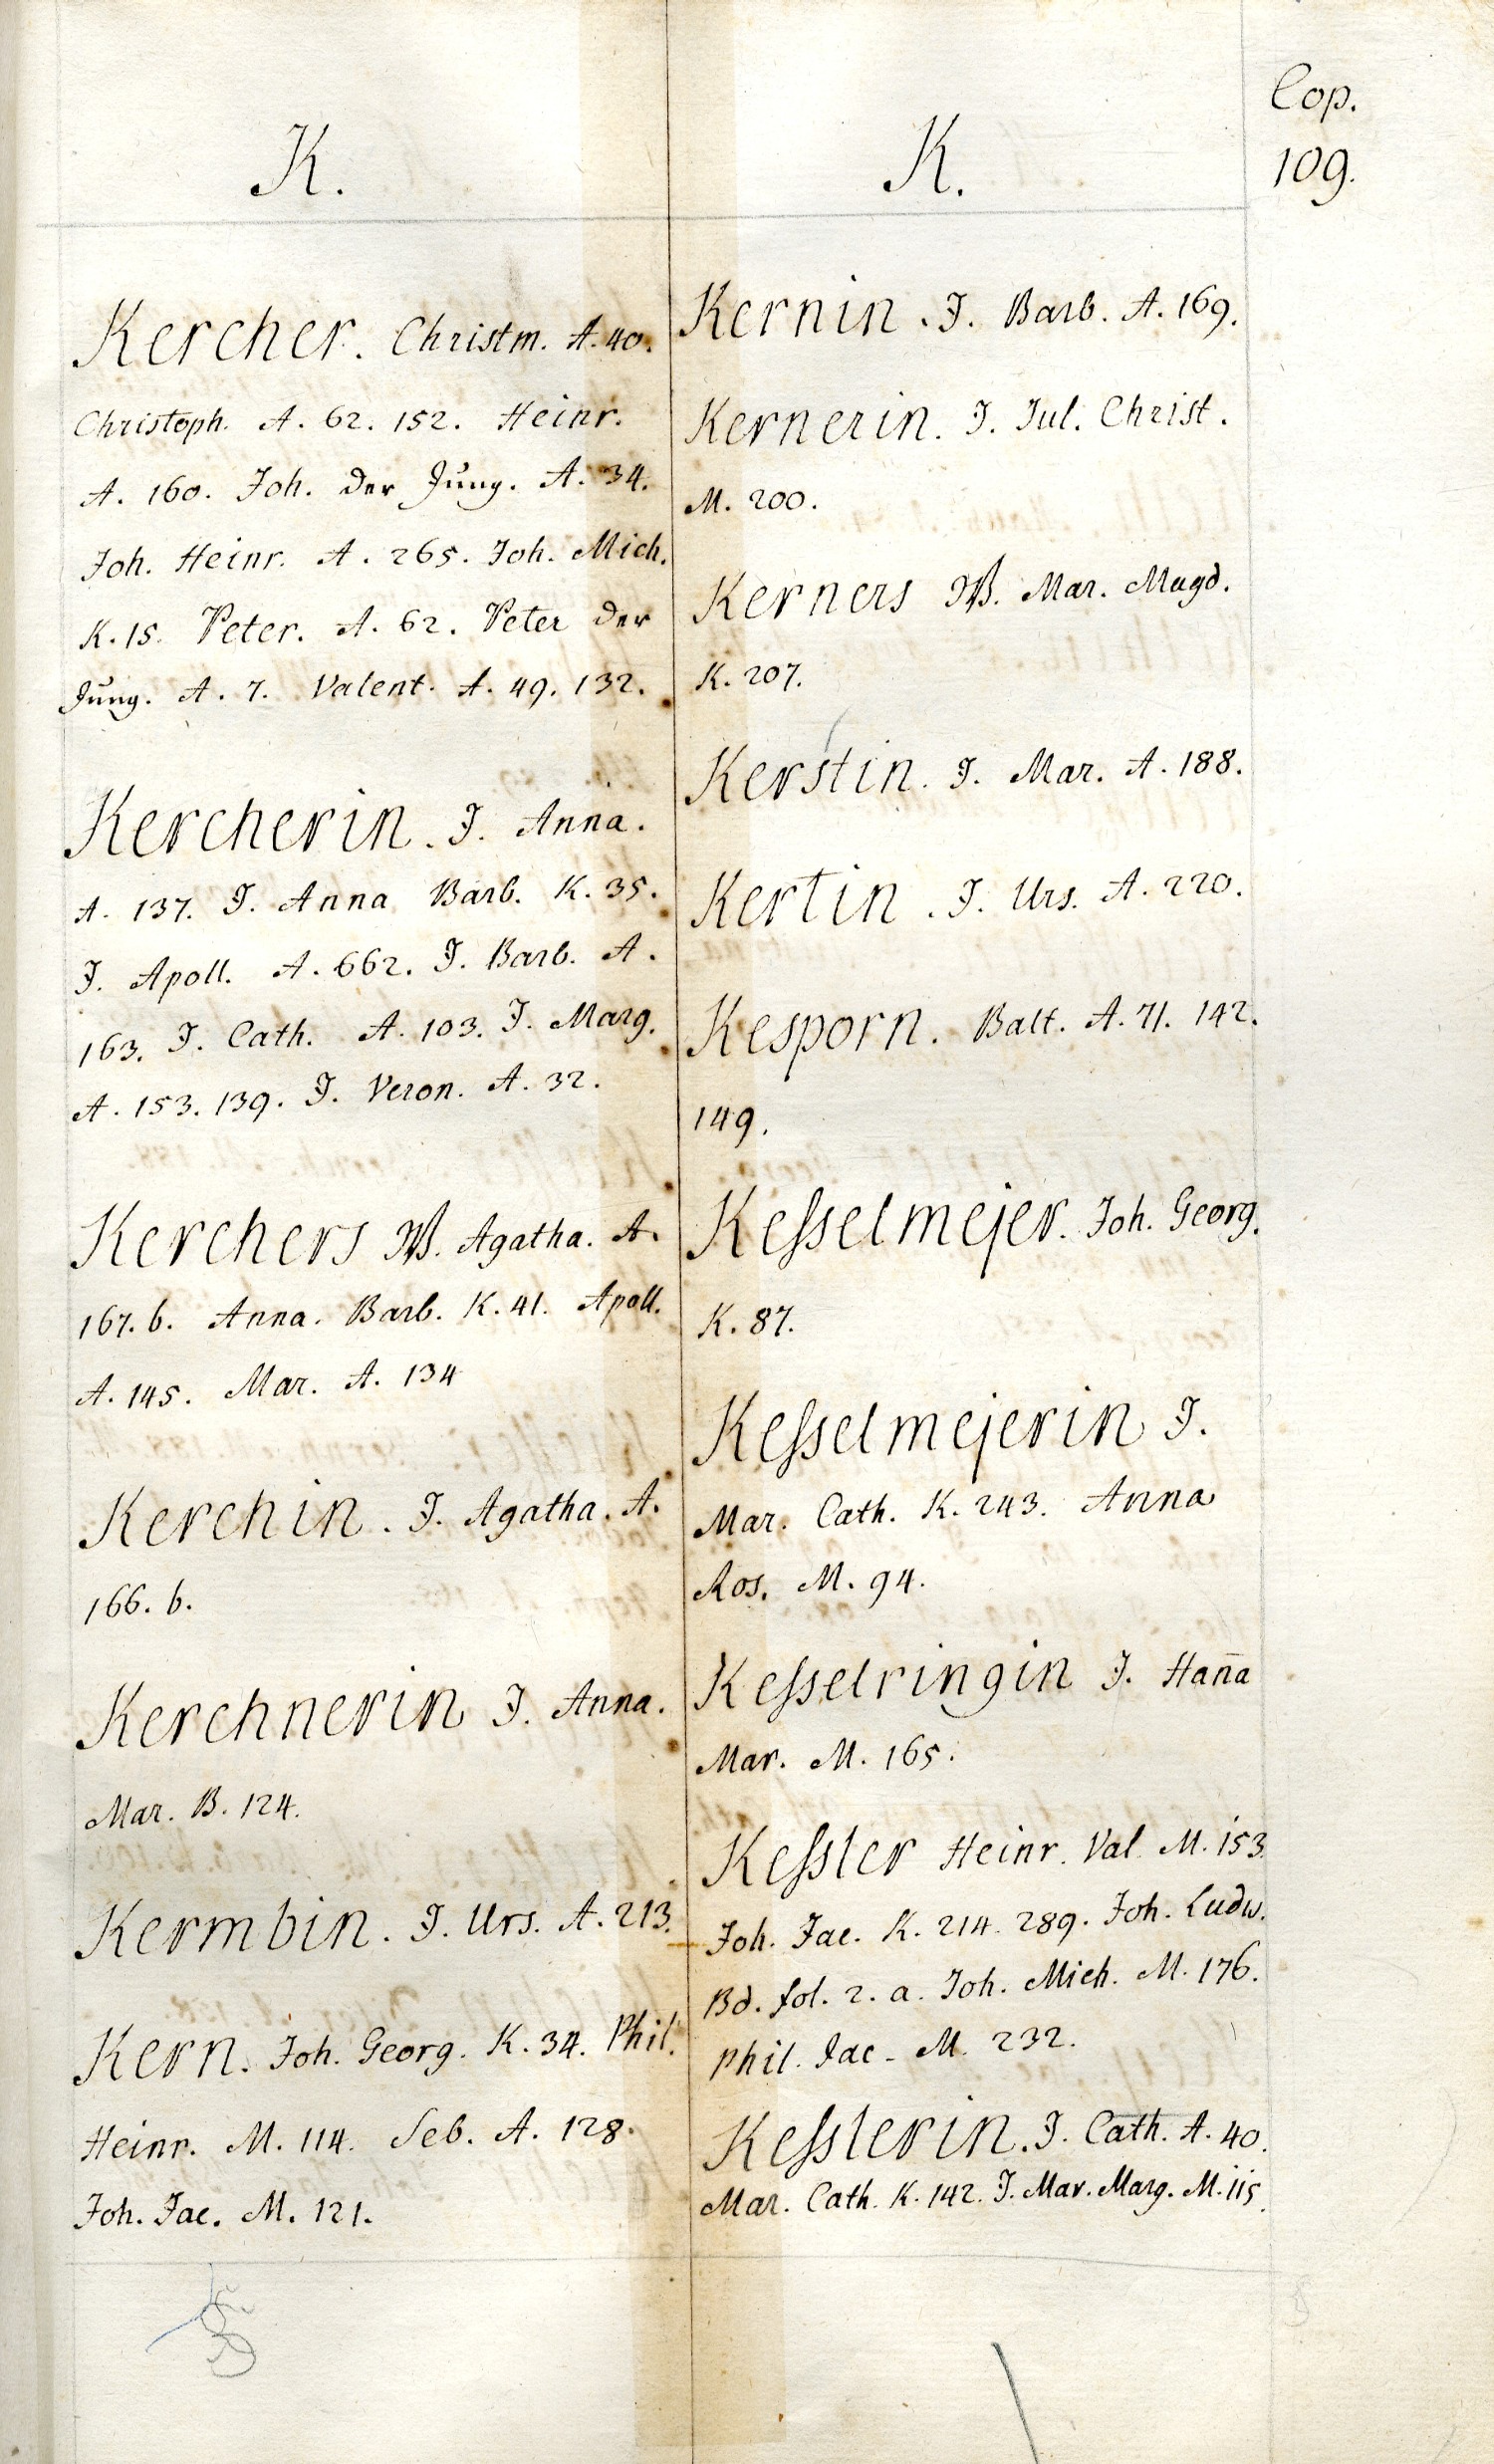 Cop.
109.
K.
Kercher. Christm. A. 40.
Christoph. A. 62. 152. Heinr.
A. 160. Joh. der Jung. A. 34.
Joh. Heinr. A. 265. Joh. Mich.
K. 15. Peter. A. 62. Peter der
Jung. A. 7. Valent. A. 49. 132.
Kercherin. J. Anna.
A. 137. J. Anna Barb. K. 35.
J. Apoll. A. 662. J. Barb. A.
163. J. Cath. A. 103. J. Marg.
A. 153. 139. J. Veron. A. 32.
Kerchers W. Agatha. A.
167. b. Anna. Barb. K. 41. Apoll.
A. 145. Mar. A. 134
Kerchin. J. Agatha. A.
166. b.
Kerchnerin J. Anna.
Mar. B. 124.
Kermbin. J. Urs. A. 213.
Kern. Joh. Georg. K. 34. Phil.
Heinr. M. 114. Seb. A. 128.
Joh. Jac. M. 121.
K.
Kernin. J. Barb. A. 169.
Kernerin. J. Jul. Christ.
M. 200.
Kerners W. Mar. Magd.
K. 207.
Kerstin. J. Mar. A. 188.
Kertin. J. Urs. A. 220.
Kesporn. Balt. A. 71. 142.
149.
Keſselmejer. Joh. Georg.
K. 87.
Keſselmejerin J.
Mar. Cath. K. 243. Anna
Ros. M. 94.
Keſselringin J. Han̄a
Mar. M. 165.
Keſsler Heinr. Val. M. 153.
Joh. Jac. K. 214. 289. Joh. Ludw.
Bd. fol. 2. a. Joh. Mich. M. 176.
Phil. Jac. M. 232.
Keſslerin. J. Cath. A. 40.
Mar. Cath. K. 142. J. Mar. Marg. M. 115.